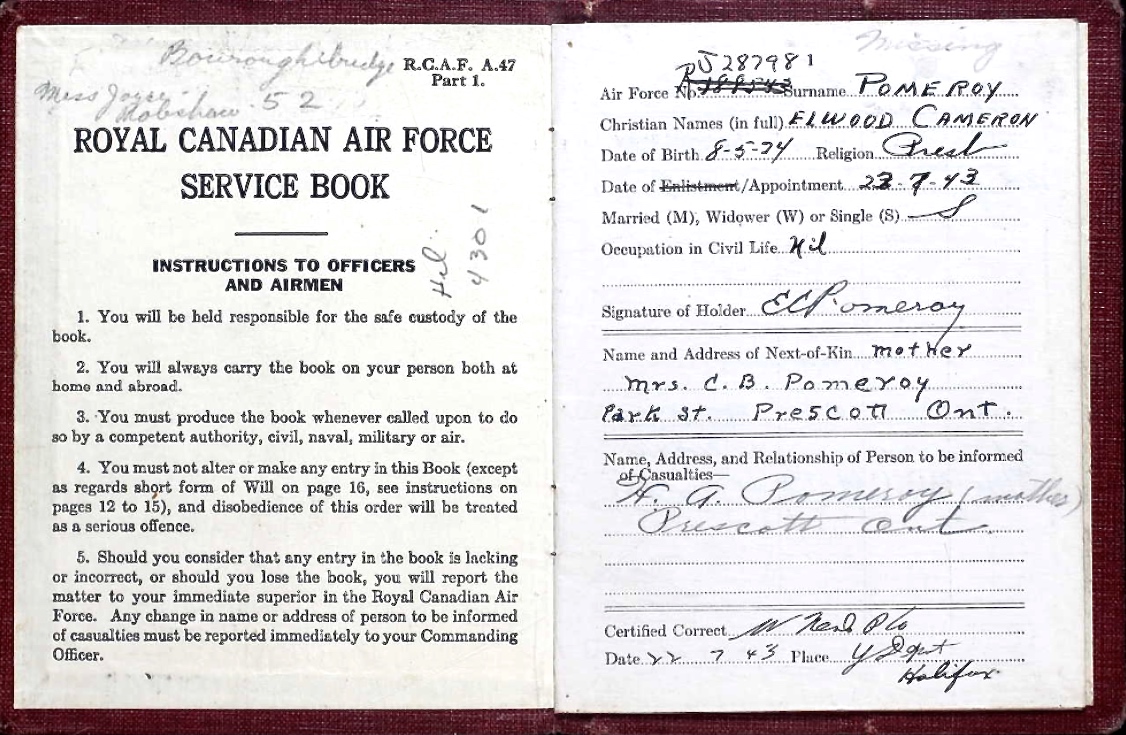 R.C.A.F. A.47
Part 1.
Miss Joyce
52
ROYAL CANADIAN AIR FORCE
SERVICE BOOK
4301
INSTRUCTIONS TO OFFICERS
AND AIRMEN
1. You will be held responsible for the safe custody of the
book.
2. You will always carry the book on your person both at
home and abroad.
3. You must produce the book whenever called upon to do
so by a competent authority, civil, naval, military or air.
4. You must not alter or make any entry in this Book (except
as regards short form of Will on page 16, see instructions on
pages 12 to 15), and disobedience of this order will be treated
as a serious offence.
5. Should you consider that any entry in the book is lacking
or incorrect, or should you lose the book, you will report the
matter to your immediate superior in the Royal Canadian Air
Force. Any change in name or address of person to be informed
of casualties must be reported immediately to your Commanding
Officer.
Missing
J287981
Air Force No. Surname POMEROY
Christian Names (in full) ELWOOD CAMERON
Date of Birth 8-5-24 Religion Presb
Date of Enlistment/Appointment 23-7-43
Married (M), Widower (W) or Single (S) S
Occupation in Civil Life Nil
Signature of Holder EC Pomeroy
Name and Address of Next-of-Kin mother
Mrs. C. B. Pomeroy
Park St. Prescott Ont.
Name, Address, and Relationship of Person to be informed
of Casualties—
Pomeroy (mother)
Prescott Ont
Certified Correct
Date 22 7 43 Place Y Dept
Halifax